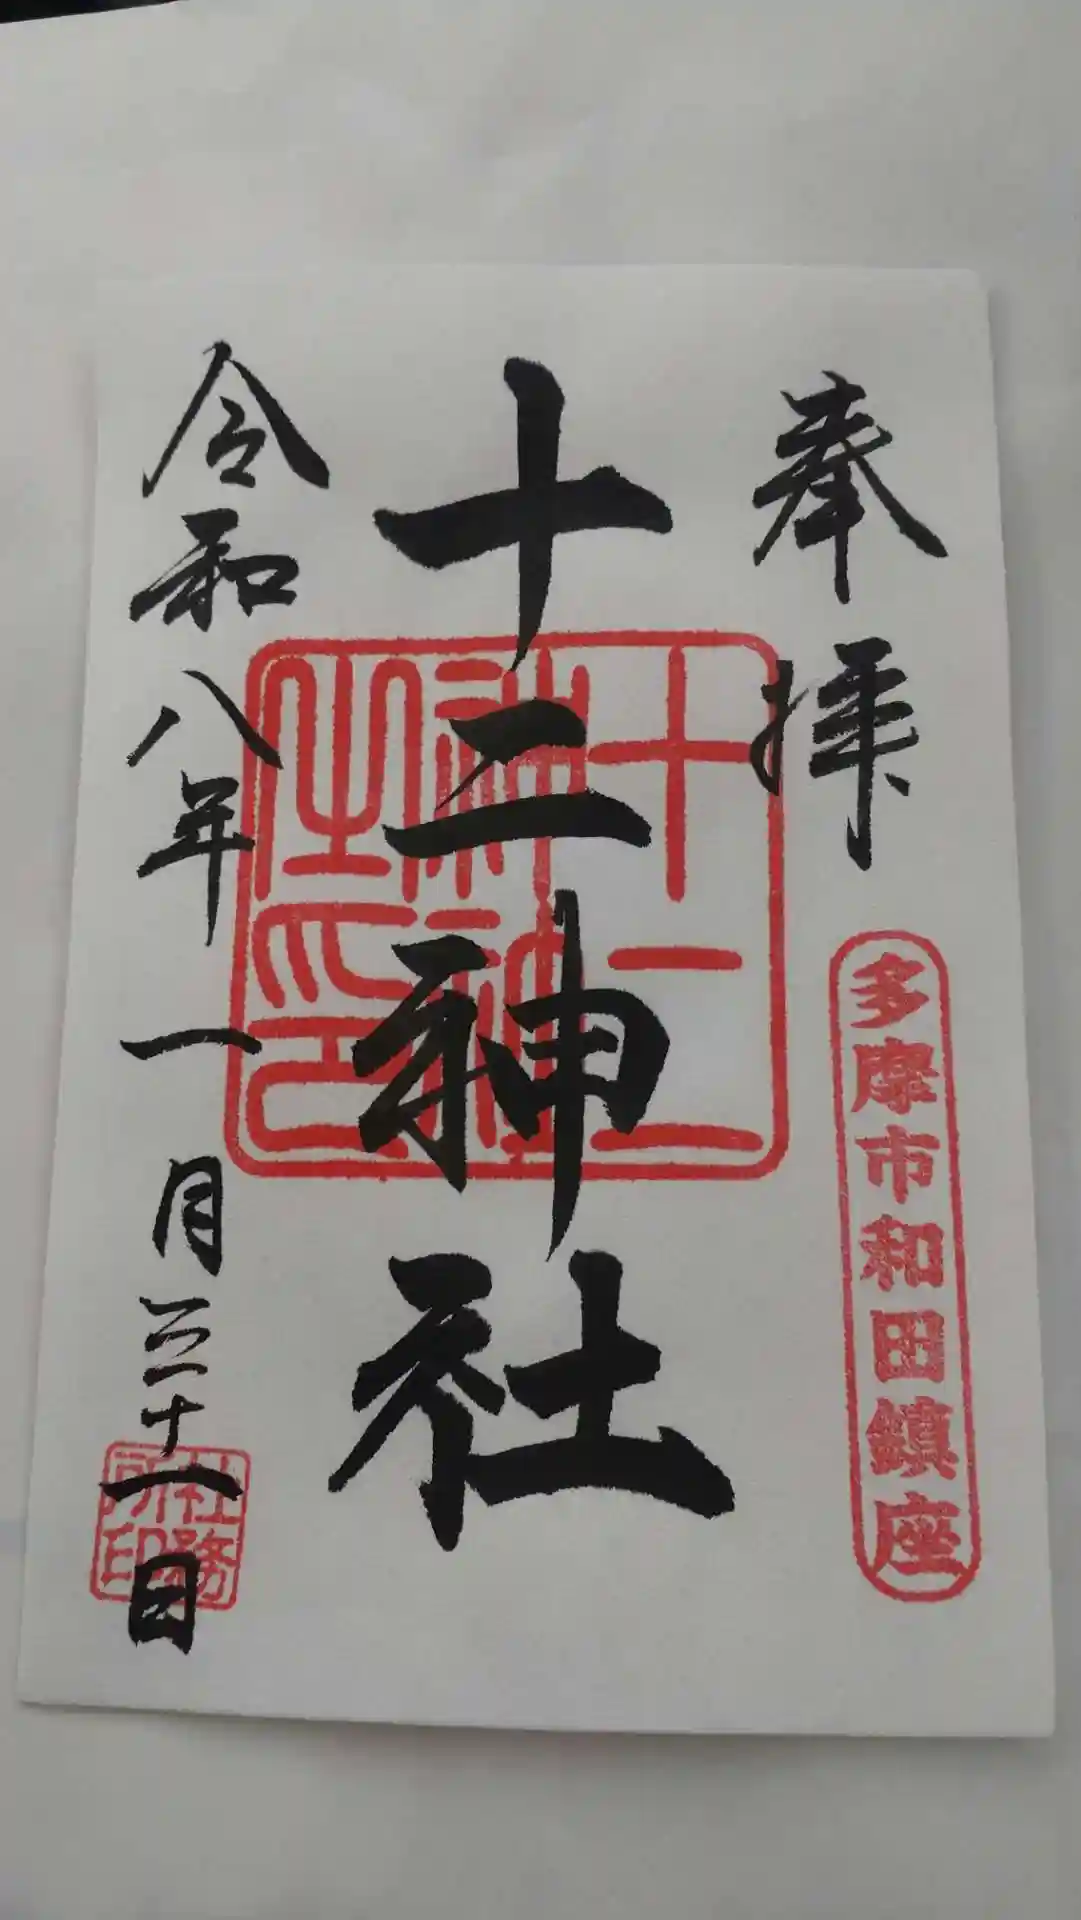 奉拝
多摩市和田鎮座
十二神社
十二神社之印
令和八年一月三十一日
社務所印